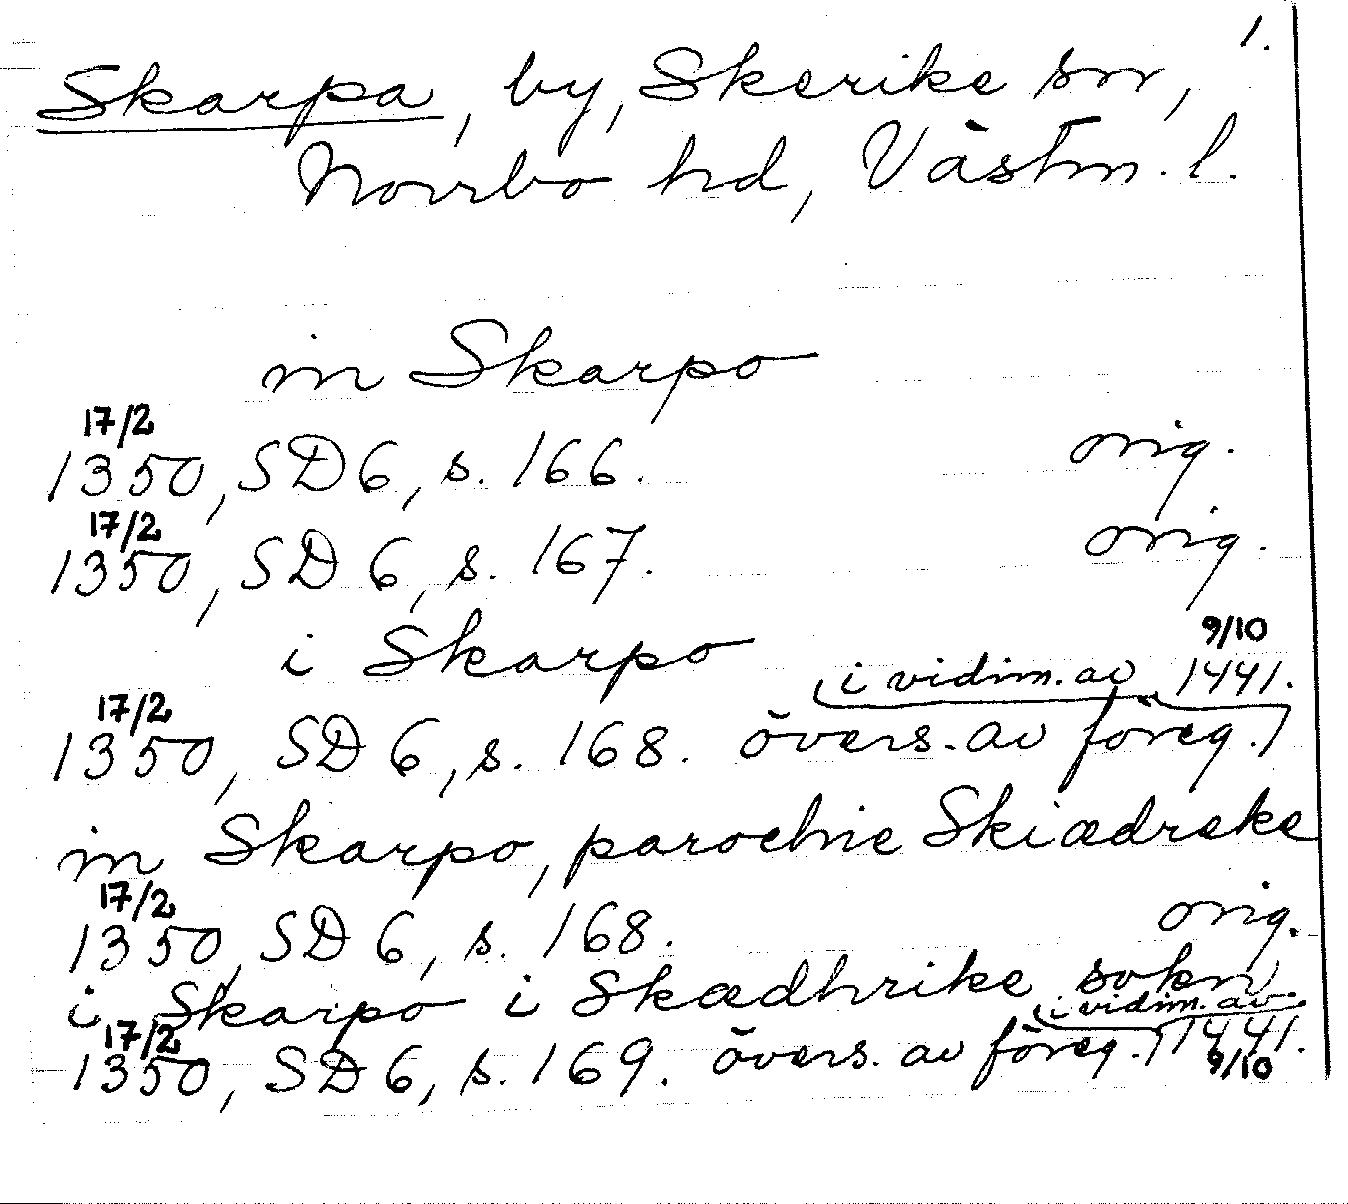 1.
Skarpa, by, Skerike sn,
Norrbo hd, Västm. l.
in Skarpo
17/2
1350, SD 6, s. 166. orig.
17/2
1350, SD 6, s. 167. orig.
i Skarpo
9/10
i vidim. av 1441.
17/2
1350, SD 6, s. 168. övers. av föreg.
in Skarpo, parochie Skiædreke
17/2
1350, SD 6, s. 168. orig.
i Skarpo i Skædhrike sokn
i vidim. av 1441.
17/2
1350, SD 6, s. 169. övers. av föreg. 9/10